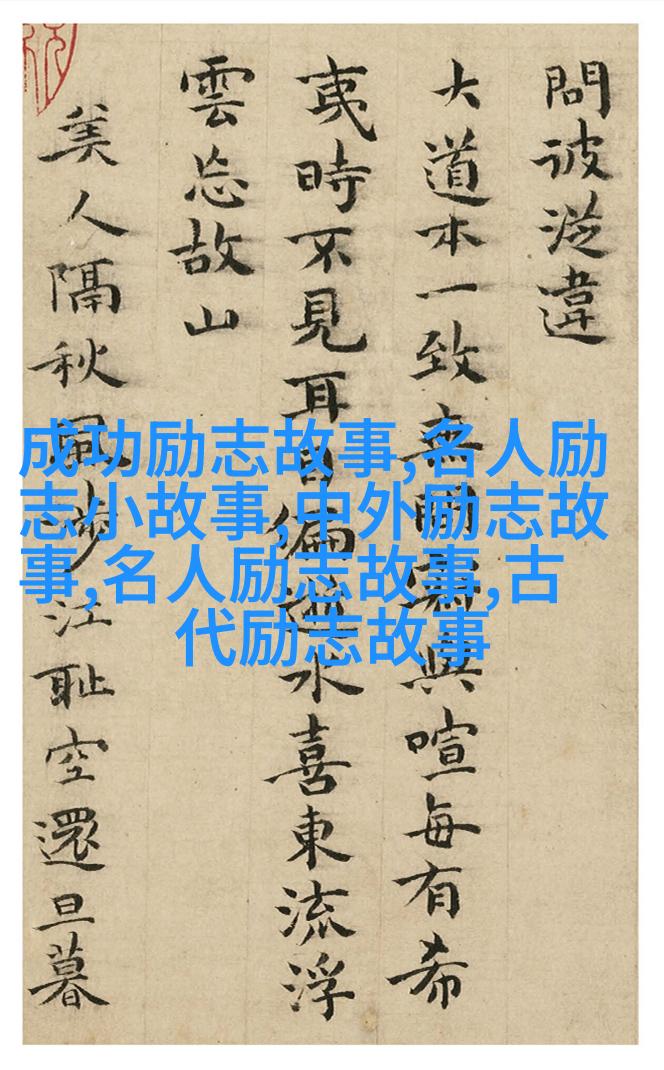 問彼違
大道本一致無與喧每有希
夷時不見耳目偏逝水喜東流浮
雲忘故山
美人隔秋風涉江耻空還旦暮
成功励志故事,名人励
志小故事,中外励志故
事,名人励志故事,古
代励志故事